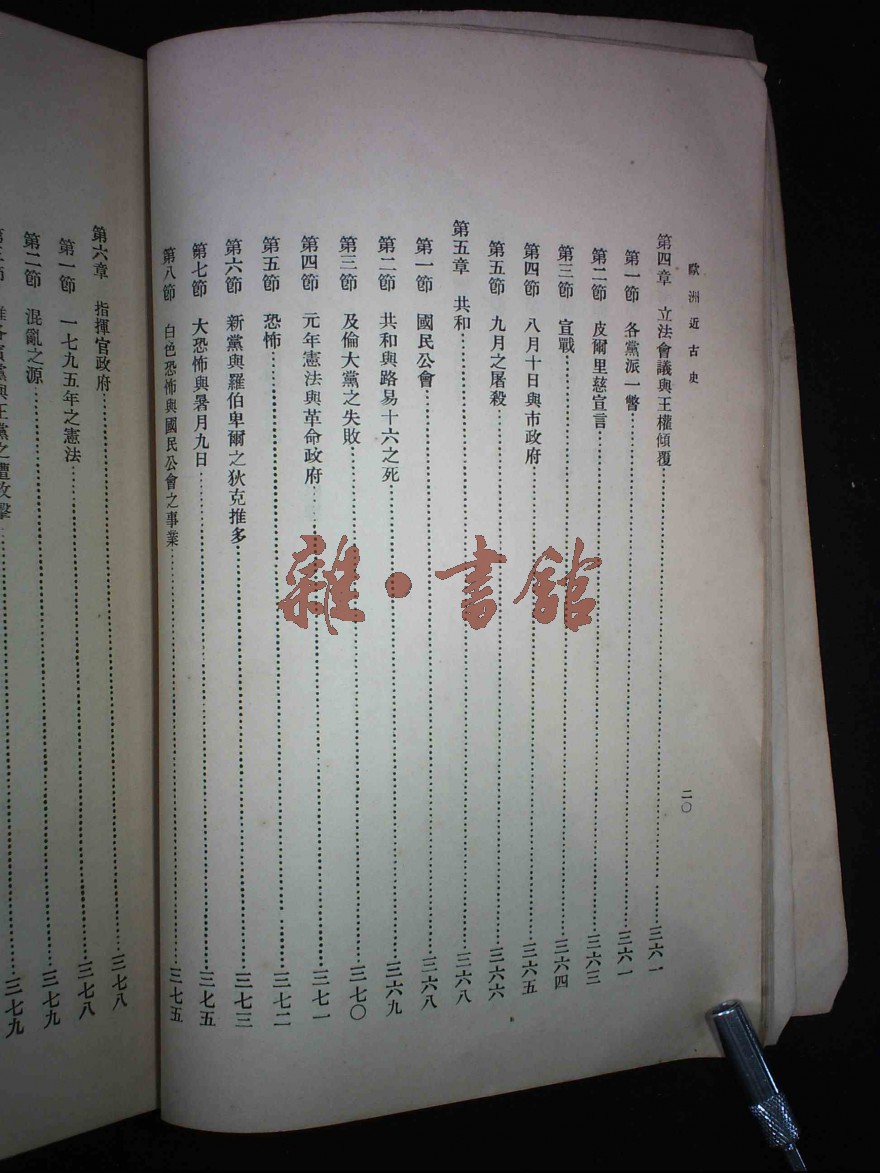 歐洲近古史
二〇
第四章 立法會議與王權傾覆…………三六一
第一節 各黨派一瞥…………三六一
第二節 皮爾里慈宣言…………三六三
第三節 宣戰…………三六四
第四節 八月十日與市政府…………三六五
第五節 九月之屠殺…………三六六
第五章 共和…………三六八
第一節 國民公會…………三六八
第二節 共和與路易十六之死…………三六九
第三節 及倫大黨之失敗…………三七〇
第四節 元年憲法與革命政府…………三七一
第五節 恐怖…………三七二
第六節 新黨與羅伯卑爾之狄克推多…………三七三
第七節 大恐怖與暑月九日…………三七五
第八節 白色恐怖與國民公會之事業…………三七五
第六章 指揮官政府…………三七八
第一節 一七九五年之憲法…………三七八
第二節 混亂之源…………三七九
黨與王黨之遭攻擊…………三七九
雜·書館